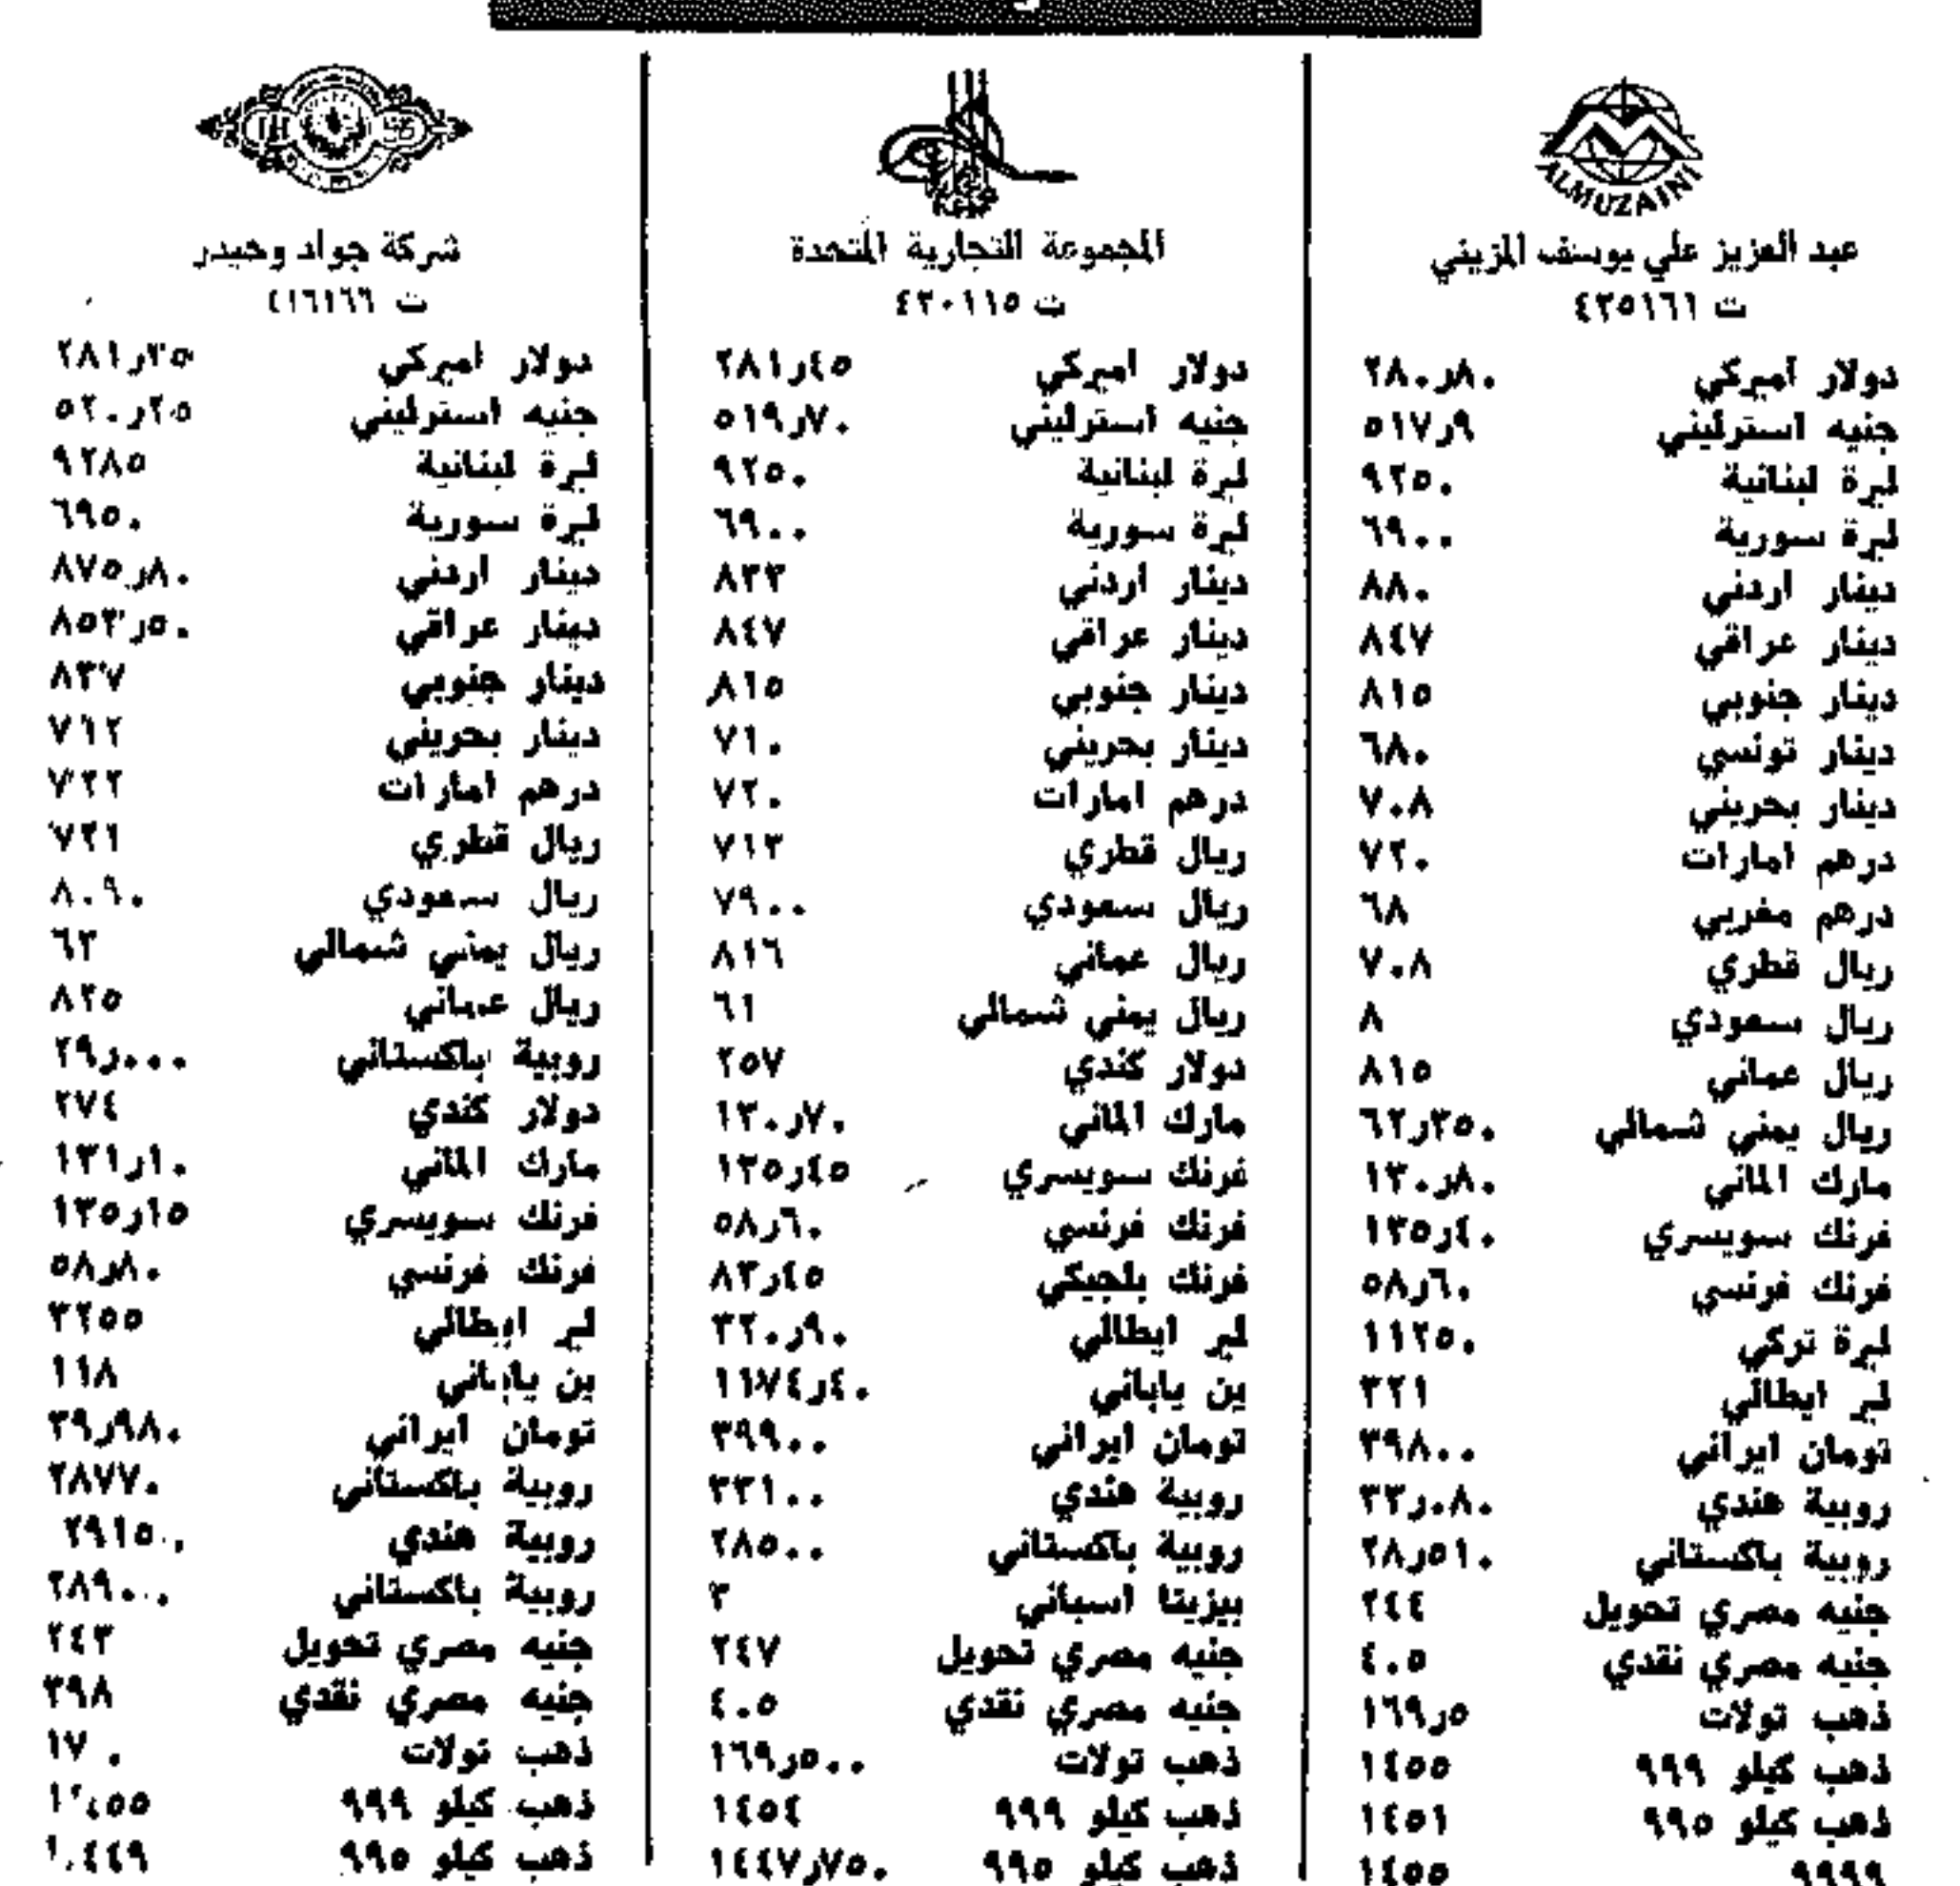 ALMUZAINI
عبد العزيز علي يوسف المزيني
ت ٤٣٥١٦١
دولار أميركي ٢٨٠ر٨٠
جنيه استرليني ٥١٧ر٩
ليرة لبنانية ٩٢٥٠
ليرة سورية ٦٩٠٠
دينار اردني ٨٨٠
دينار عراقي ٨٤٧
دينار جنوبي ٨١٥
دينار تونسي ٦٨٠
دينار بحريني ٧٠٨
درهم امارات ٧٢٠
درهم مغربي ٦٨
ريال قطري ٧٠٨
ريال سعودي ٨
ريال عماني ٨١٥
ريال يمني شمالي ٦٢ر٣٥٠
مارك الماني ١٣٠ر٨٠
فرنك سويسري ١٣٥ر٤٠
فرنك فرنسي ٥٨ر٦٠
ليرة تركي ١١٢٥٠
لير ايطالي ٣٢١
تومان ايراني ٣٩٨٠٠
روبية هندي ٣٣ر٠٨٠
روبية باكستاني ٢٨ر٥١٠
جنيه مصري تحويل ٢٤٤
جنيه مصري نقدي ٤٠٥
ذهب تولات ١٦٩ر٥
ذهب كيلو ٩٩٩ ١٤٥٥
ذهب كيلو ٩٩٥ ١٤٥١
٩٩٩٩ ١٤٥٥
المجموعة التجارية المتحدة
ت ٤٣٠١١٥
دولار اميركي ٢٨١ر٤٥
جنيه استرليني ٥١٩ر٧٠
ليرة لبنانية ٩٢٥٠
ليرة سورية ٦٩٠٠
دينار اردني ٨٣٣
دينار عراقي ٨٤٧
دينار جنوبي ٨١٥ر
دينار بحريني ٧١٠
درهم امارات ٧٢٠
ريال قطري ٧١٣
ريال سعودي ٧٩٠٠
ريال عماني ٨١٦
ريال يمني شمالي ٦١
دولار كندي ٢٥٧
مارك الماني ١٣٠ر٧٠
فرنك سويسري ١٣٥ر٤٥
فرنك فرنسي ٥٨ر٦٠
فرنك بلجيكي ٨٣ر٤٥
لير ايطالي ٣٢٠ر٩٠
ين ياباني ١١٧٤ر٤٠
تومان ايراني ٣٩٩٠٠
روبية هندي ٣٣١٠٠
روبية باكستاني ٢٨٥٠٠
بيزيتا اسباني ٣
جنيه مصري تحويل ٢٤٧
جنيه مصري نقدي ٤٠٥
ذهب تولات ١٦٩ر٥٠٠
ذهب كيلو ٩٩٩ ١٤٥٤
ذهب كيلو ٩٩٥ ١٤٤٧ر٧٥٠
شركة جواد وحيدر
ت ٤١٦١٦٦
دولار اميركي ٢٨١ر٣٥
جنيه استرليني ٥٢٠ر٢٥
ليرة لبنانية ٩٢٨٥
ليرة سورية ٦٩٥٠
دينار اردني ٨٧٥ر٨٠
دينار عراقي ٨٥٣ر٥٠
دينار جنوبي ٨٣٧
دينار بحريني ٧١٢
درهم امارات ٧٢٢
ريال قطري ٧٢١
ريال سعودي ٨٠٩٠
ريال يمني شمالي ٦٢
ريال عماني ٨٢٥
روبية باكستاني ٢٩ر٠٠٠
دولار كندي ٢٧٤
مارك الماني ١٣١ر١٠
فرنك سويسري ١٣٥ر١٥
فرنك فرنسي ٥٨ر٨٠
لير ايطالي ٣٢٥٥
ين ياباني ١١٨
تومان ايراني ٣٩ر٩٨٠
روبية باكستاني ٢٨٧٧٠
روبية هندي ٢٩١٥٠
روبية باكستاني ٢٨٩٠٠
جنيه مصري تحويل ٢٤٣
جنيه مصري نقدي ٣٩٨
ذهب تولات ١٧٠
ذهب كيلو ٩٩٩
ذهب كيلو ٩٩٥